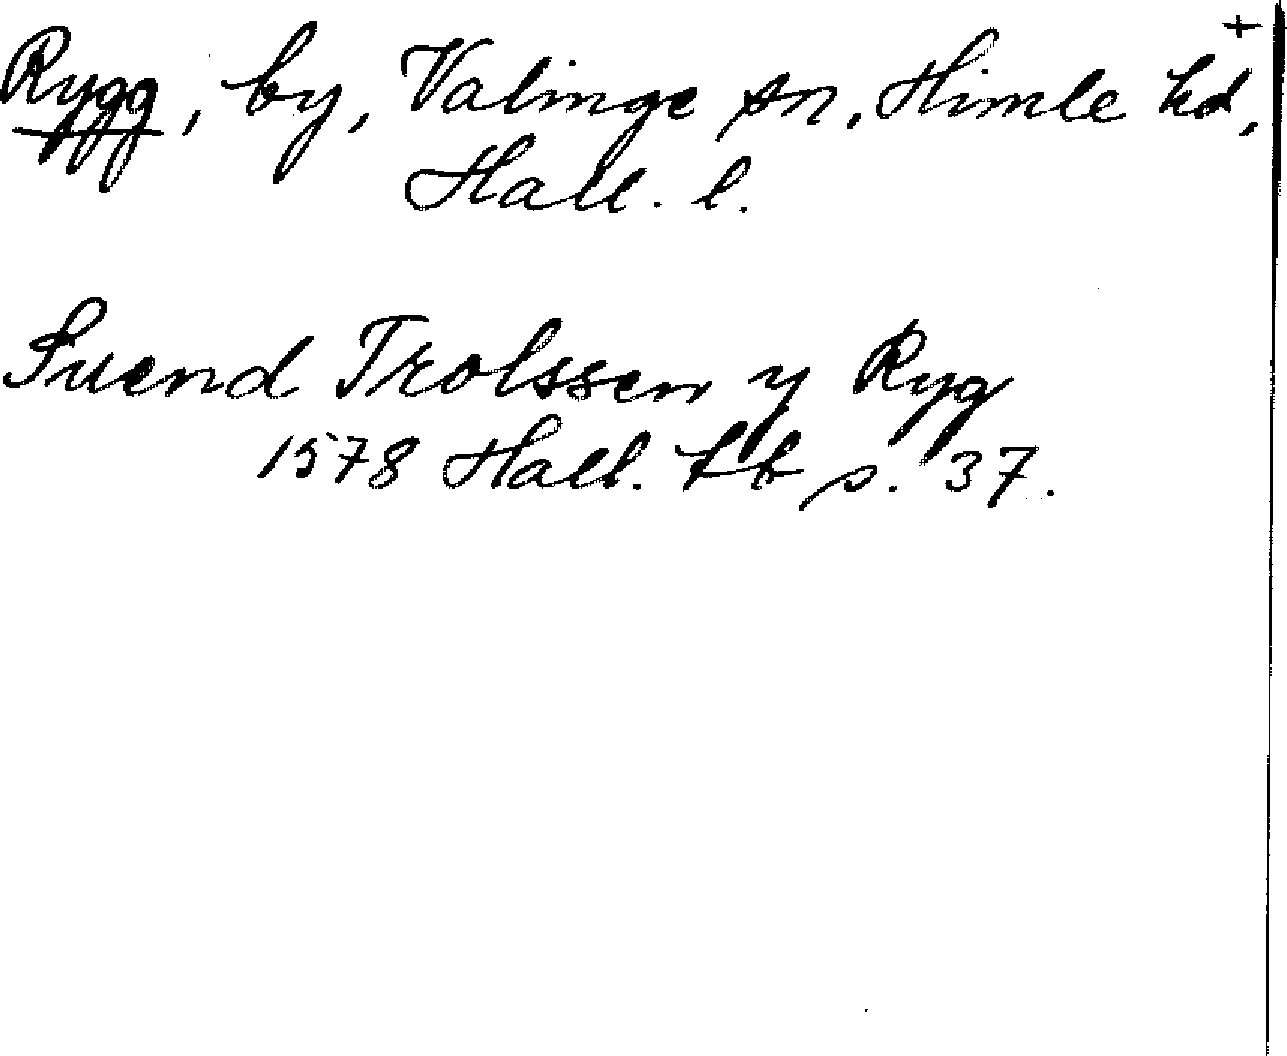 +
Rygg, by, Valinge sn, Himle hd,
Hall. l.
Suend Trolssen y Ryg
1578 Hall. lb s. 37.